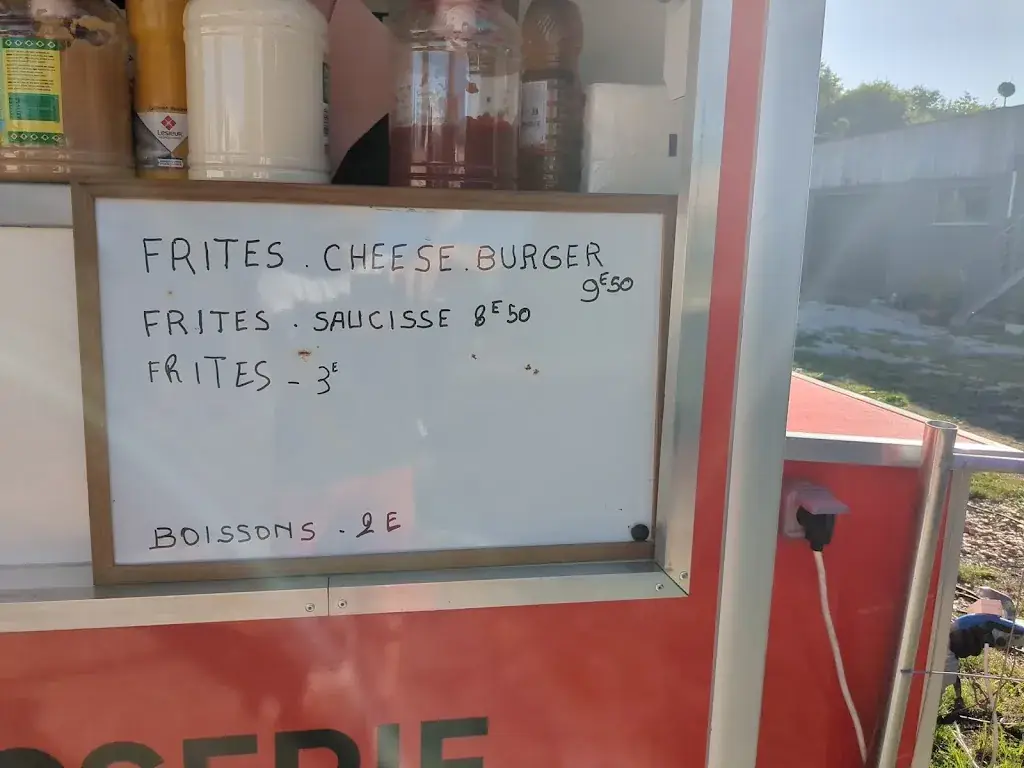 LESIEUR
FRITES . CHEESE . BURGER
9E50
FRITES . SAUCISSE 8E50
FRITES - 3E
BOISSONS . 2 E